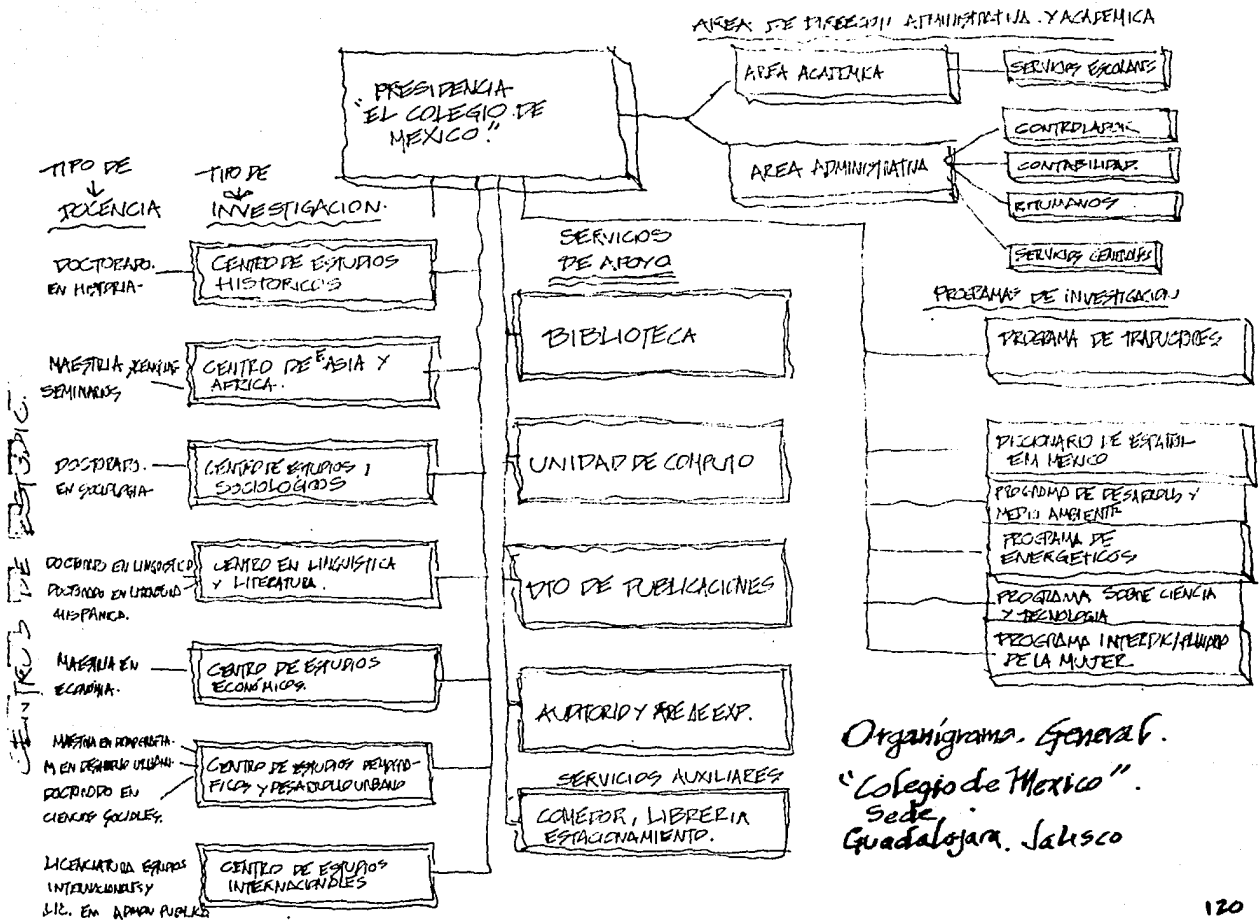 AREA DE DIRECCION ADMINISTRATIVA Y ACADEMICA
"PRESIDENCIA
EL COLEGIO DE
MEXICO."
AREA ACADEMICA
SERVICIOS ESCOLARES
AREA ADMINISTRATIVA
CONTABILIDAD.
SERVICIOS GENERALES
TIPO DE
DOCENCIA
TIPO DE
INVESTIGACION.
CENTROS DE ESTUDIO.
DOCTORADO.
EN HISTORIA
CENTRO DE ESTUDIOS
HISTORICOS
MAESTRIA
SEMINARIOS
CENTRO DE E ASIA Y
AFRICA.
DOCTORADO.
EN SOCIOLOGIA
CENTRO DE ESTUDIOS
SOCIOLOGICOS
DOCTORADO EN LINGUISTICA
DOCTORADO EN LITERATURA
HISPANICA.
CENTRO EN LINGUISTICA
Y LITERATURA.
MAESTRIA EN
ECONOMIA.
CENTRO DE ESTUDIOS
ECONÓMICOS.
MAESTRIA EN DEMOGRAFIA.
M EN DESARROLLO URBANO
DOCTORADO EN
CIENCIAS SOCIALES.
CENTRO DE ESTUDIOS DEMOGRA-
FICOS Y DESARROLLO URBANO
LICENCIATURA ESTUDIOS
INTERNACIONALES Y
LIC. EN ADMON PUBLICA
CENTRO DE ESTUDIOS
INTERNACIONALES
SERVICIOS
DE APOYO
BIBLIOTECA
UNIDAD DE COMPUTO
DTO DE PUBLICACIONES
AUDITORIO Y ARE DE EXP.
SERVICIOS AUXILIARES
COMEDOR, LIBRERIA
ESTACIONAMIENTO.
PROGRAMAS DE INVESTIGACION
PROGRAMA DE TRADUCTORES
DICCIONARIO DE ESPAÑOL
EM MEXICO
PROGRAMA DE DESARROLLO Y
MEDIO AMBIENTE
PROGRAMA DE
ENERGETICOS
PROGRAMA SOBRE CIENCIA
Y TECNOLOGIA
PROGRAMA
DE LA MUJER
Organigrama. General.
"Colegio de Mexico".
Sede.
Guadalajara. Jalisco
120